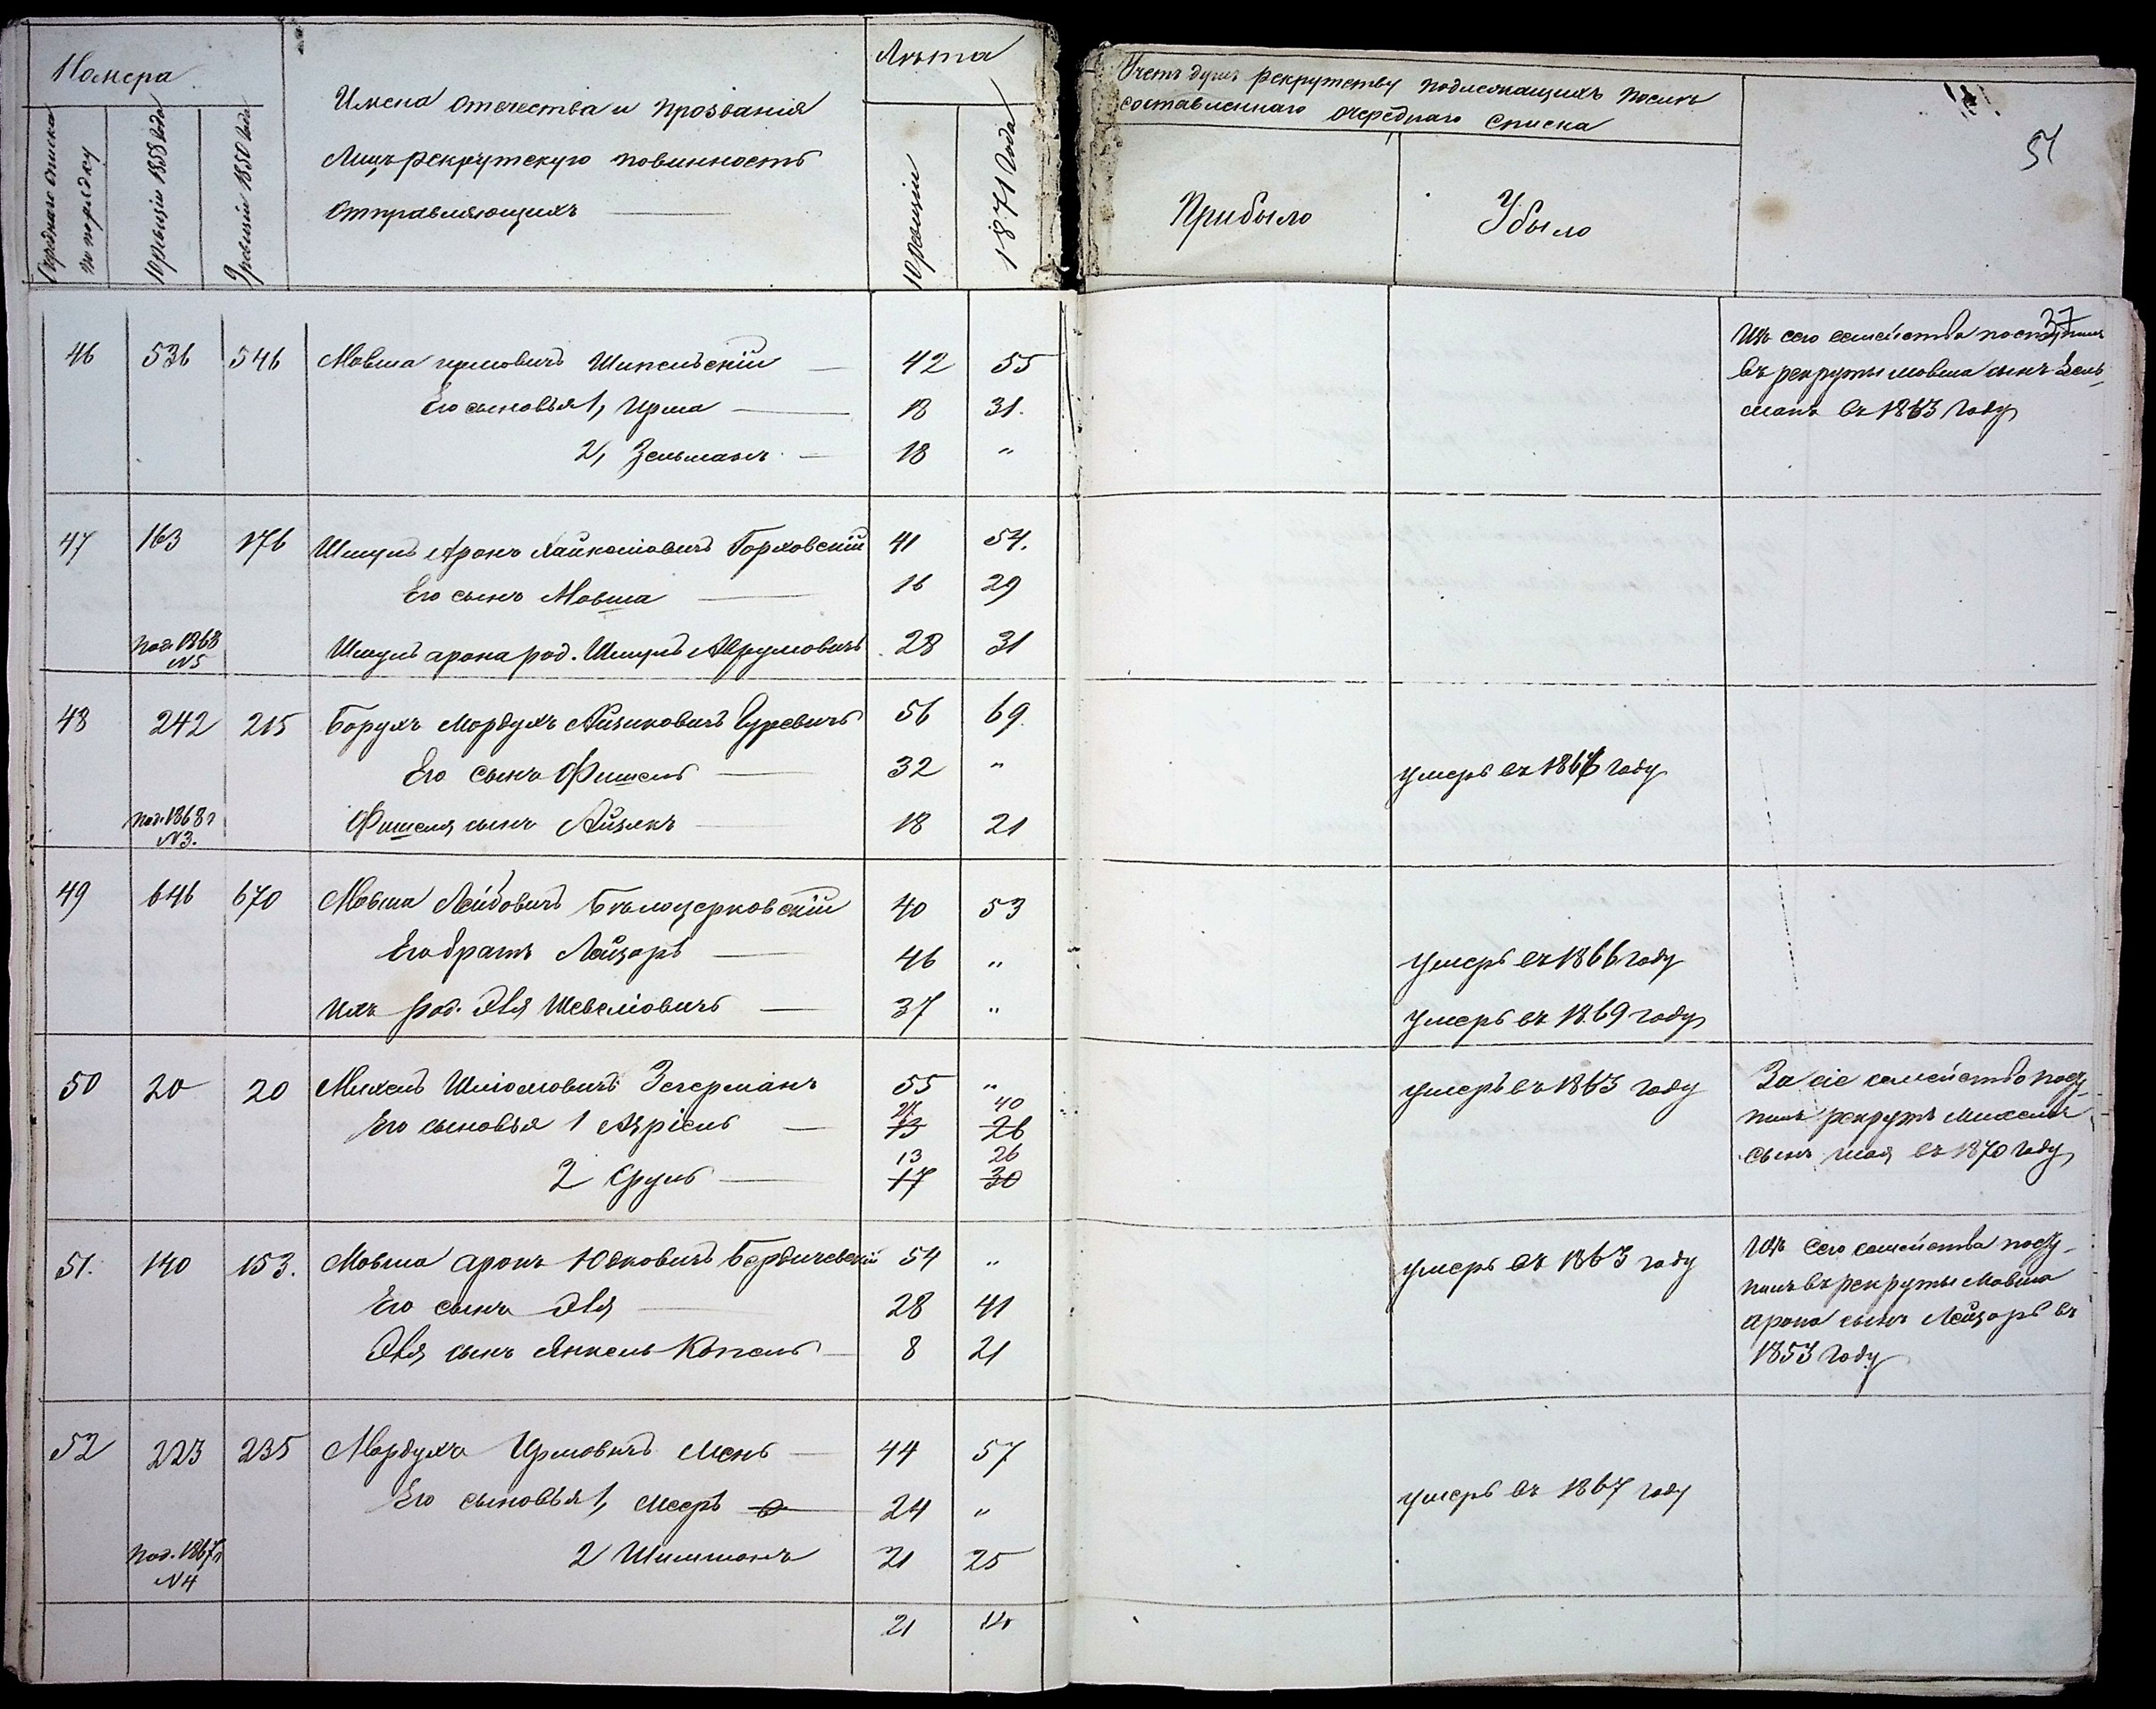 Номера
Очереднаго списка по порядку
10 ревизіи 1858 года
9 ревизіи 1850 года
Имена отечества и прозванія
Лицъ рекрутскую повинность
отправляющихъ
Лѣта
10 ревизіи
1871 года
Счетъ душъ рекрутству подлежащихъ послѣ
составленнаго очереднаго списка
Прибыло
Убыло
51
37
46 536 546 Мовша Ирмовичъ 42 55
Его сыновья 1, Ирма 18 31.
2, Зельманъ 18 "
Изъ сего семейства поступилъ
въ рекруты Мовша сынъ Зель
манъ въ 1863 году
47 163 176 Шмуль Аронъ Горховскій 41 54.
Его сынъ Мовша 16 29
Под. 1868 Шмуль Арона род. Шмуль Абрумовичъ 28 31
N 5
48 242 215 Борухъ Мордухъ Айзиковичъ Гуревичъ 56 69.
Его сынъ Фишель 32 " умеръ въ 1866 году
Под. 1868 г Фишеля сынъ Айзикъ 18 21
N 3.
49 646 670 Мовша Лейбовичъ Бѣлоцерковскій 40 53
Его братъ Лейзоръ 46 " умеръ въ 1866 году
Ихъ род. Эля Шевелiовичъ 37 " умеръ въ 1869 году
50 20 20 Михель Шліомовичъ Зегерманъ 55 " умеръ въ 1863 году
27 40
Его сыновья 1 Азріель 13 26
13 26
2 Сруль 17 30
За сіе семейство посту
пилъ рекрутъ Михеля
сынъ въ 1870 году
51. 140 153. Мовша Аронъ Юдковичъ Бердичевскій 54 " умеръ въ 1863 году
Его сынъ Эля 28 41
Эля сынъ Янкель Копель 8 21
Изъ сего семейства посту
пилъ въ рекруты Мовша
Арона сынъ Лейзоръ въ
1853 году
52 223 235 Мордухъ Ирмовичъ Мень 44 57
Его сыновья 1, Мееръ 24 " умеръ въ 1867 году
Под. 1867 г 2 Шимшонъ 21 25
N 4
21 14